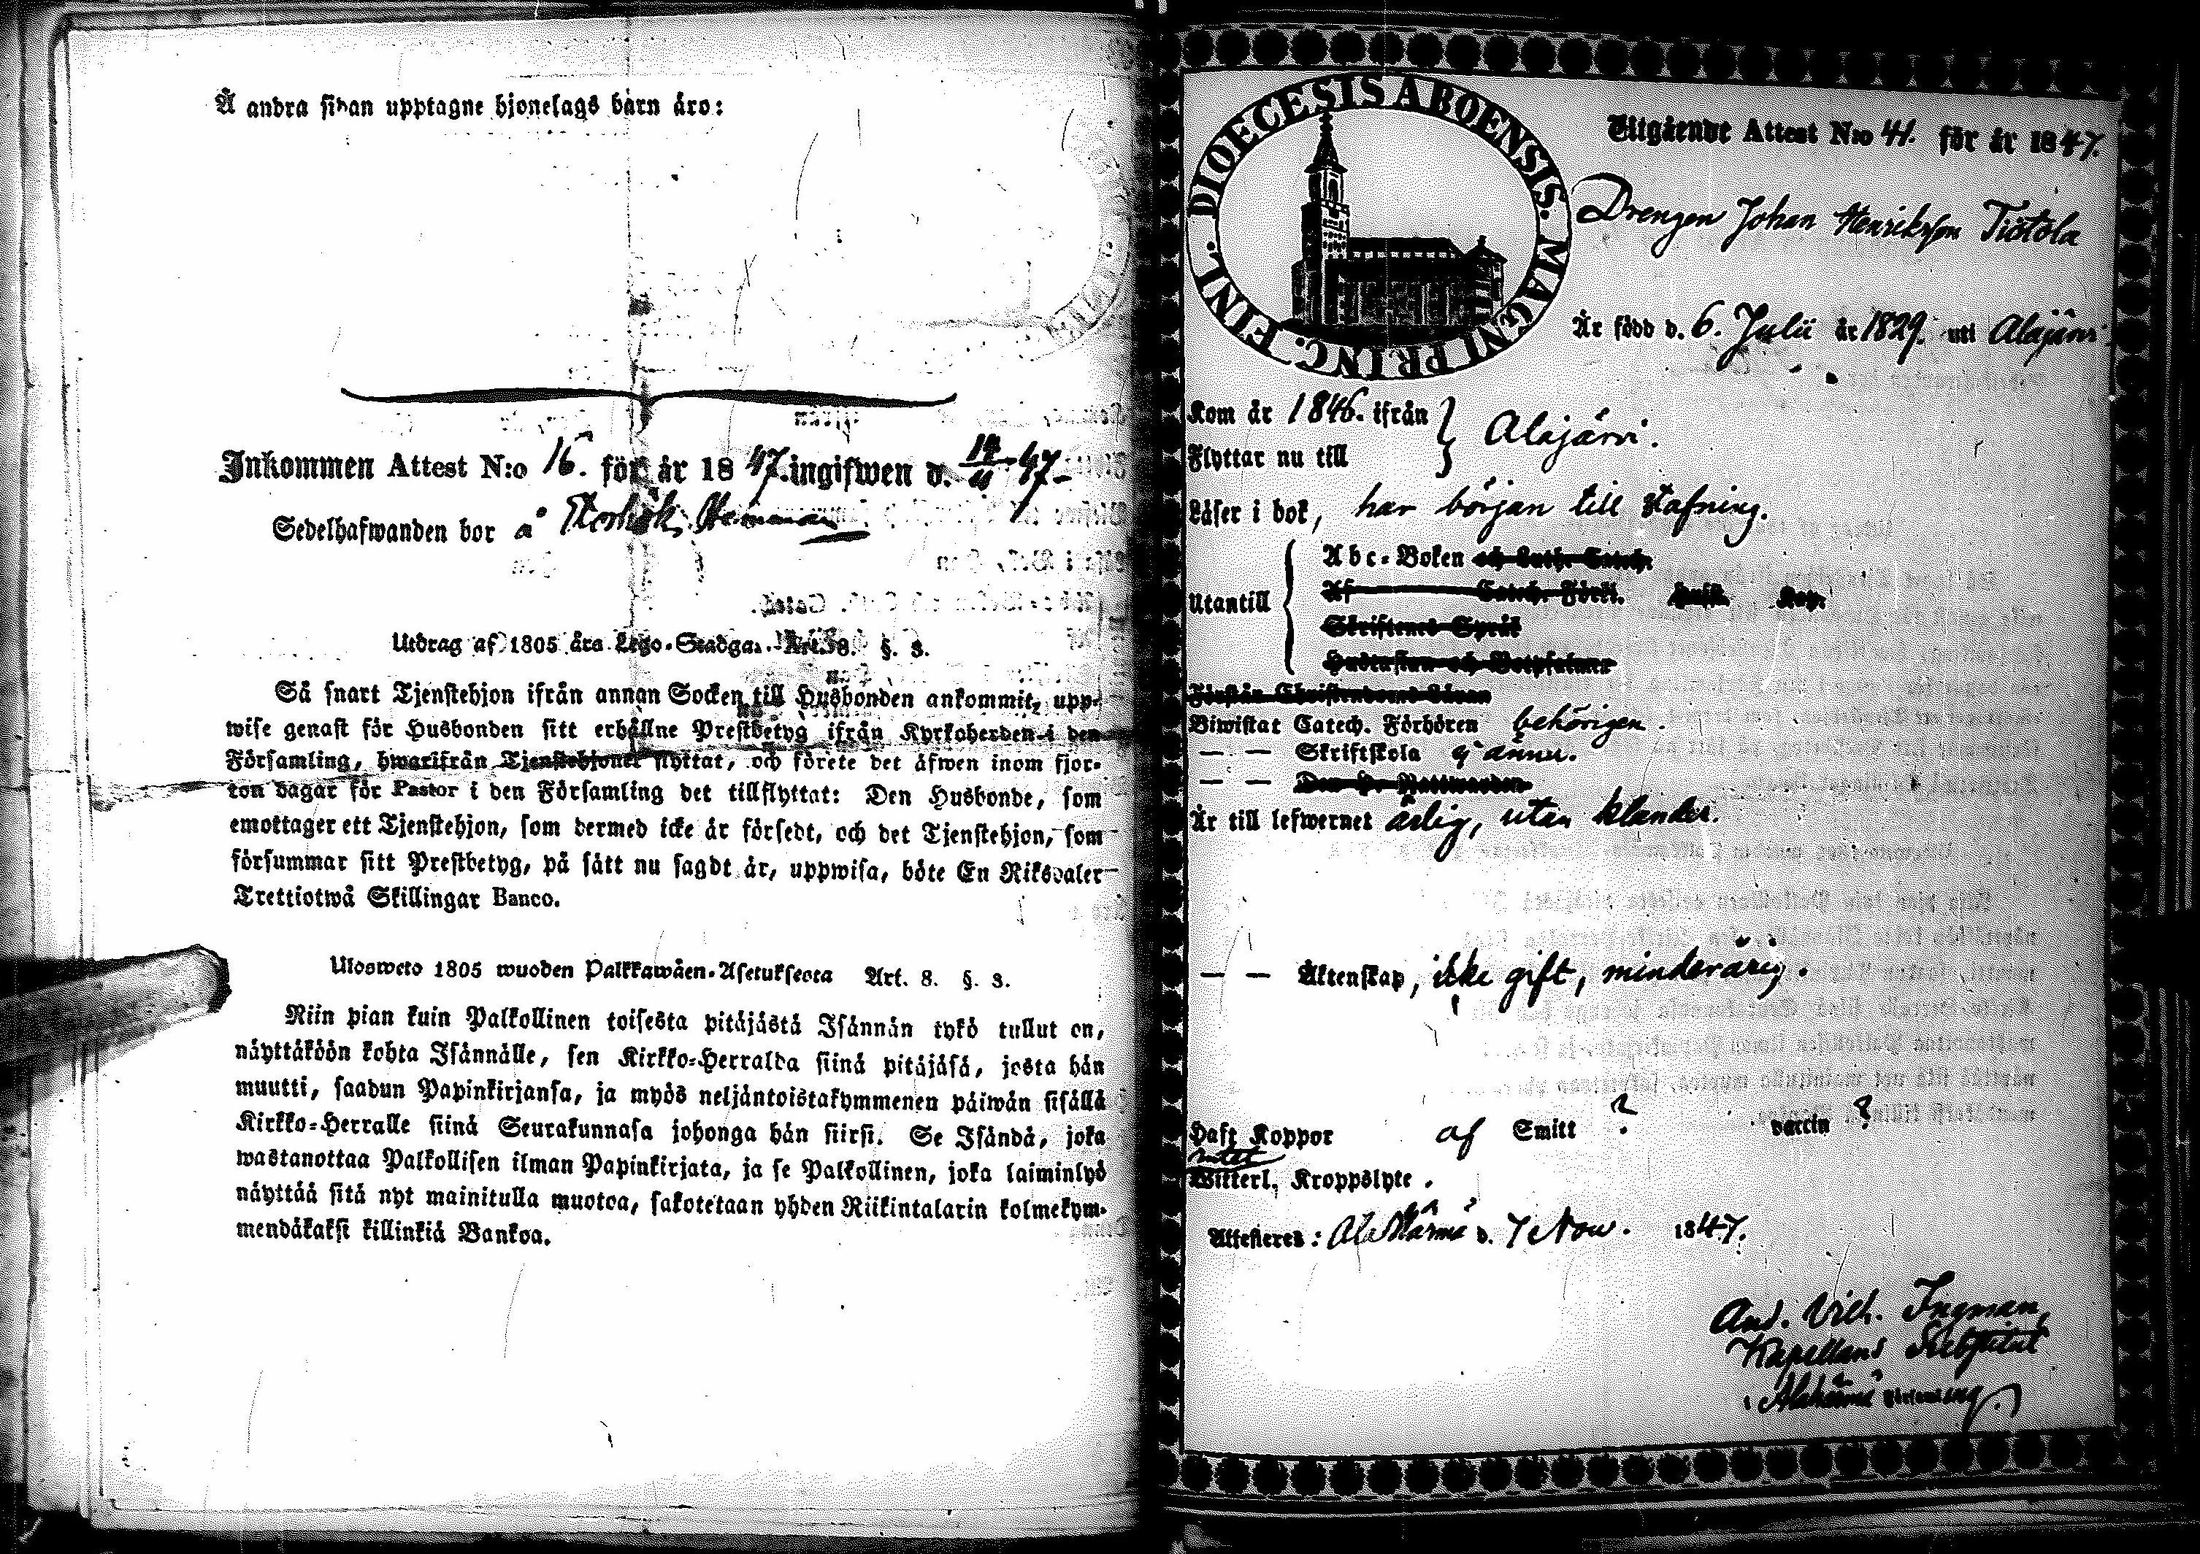 Å andra sidan upptagne hjonelags barn äro:
Inkommen Attest N:o 16. för år 1847. ingifwen d. 14/11 47
Sedelhafwanden bor å Hemman
Utdrag af 1805 åra Lego-Stadgan. Art. 8. §. 3.
Så snart Tjenstehjon ifrån annan Socken till Husbonden ankommit, upp-
wise genast för Husbonden sitt erhållne Prestbetyg ifrån Kyrkoherden i den
Församling, hwarifrån Tjenstehjonet flyttat, och förete det äfwen inom fjor-
ton dagar för Pastor i den Församling det tillflyttat: Den Husbonde, som
emottager ett Tjenstehjon, som dermed icke är försedt, och det Tjenstehjon, som
försummar sitt Prestbetyg, på sätt nu sagdt är, uppwisa, böte En Riksdaler
Trettiotwå Skillingar Banco.
Ulosweto 1805 wuoden Palkkawäen-Asetuksesta Art. 8. §. 3.
Niin pian kuin Palkollinen toisesta pitäjästä Isännän tykö tullut on,
näyttäköön kohta Isännälle, sen Kirkko-Herralda siinä pitäjäsä, josta hän
muutti, saadun Papinkirjansa, ja myös neljäntoistakymmenen päiwän sisällä
Kirkko-Herralle siinä Seurakunnasa johonga hän siirsi. Se Isändä, joka
wastanottaa Palkollisen ilman Papinkirjata, ja se Palkollinen, joka laiminlyö
näyttää sitä nyt mainitulla muotoa, sakotetaan yhden Riikintalarin kolmekym-
mendäkaksi killinkiä Bankoa.
DIOECESIS ABOENSIS. MAGNI PRINC. FINL.
Utgående Attest N:o 41. för år 1847.
Drengen Johan Henriksson Tiötola
Är född d. 6. Julii år 1829. uti Alajärvi
Kom år 1846. ifrån
Flyttar nu till } Alajärvi.
Läser i bok, har början till stafning.
Utantill { Abc-Boken och Luth. Catech.
Af Catech. Förkl. Hust. Kap.
Skriftenes Språk
Hustaflan och Botpsalmer
Förstår Christendoms Läran
Biwistat Catech. Förhören behörigen.
— — Skriftskola ej ännu.
— — Den H. Nattwarden
Är till lefwernet ärlig, utan klander.
— — Äktenskap, icke gift, minderårig.
Haft Koppor af Smitt ? vaccin ?
intet
Witterl. Kroppslyte.
Attesteres: Alahärmä d. 7 Nov. 1847.
And. Vilh. Ingman,
Kapellans Substitut
i Alahärmä Församling.